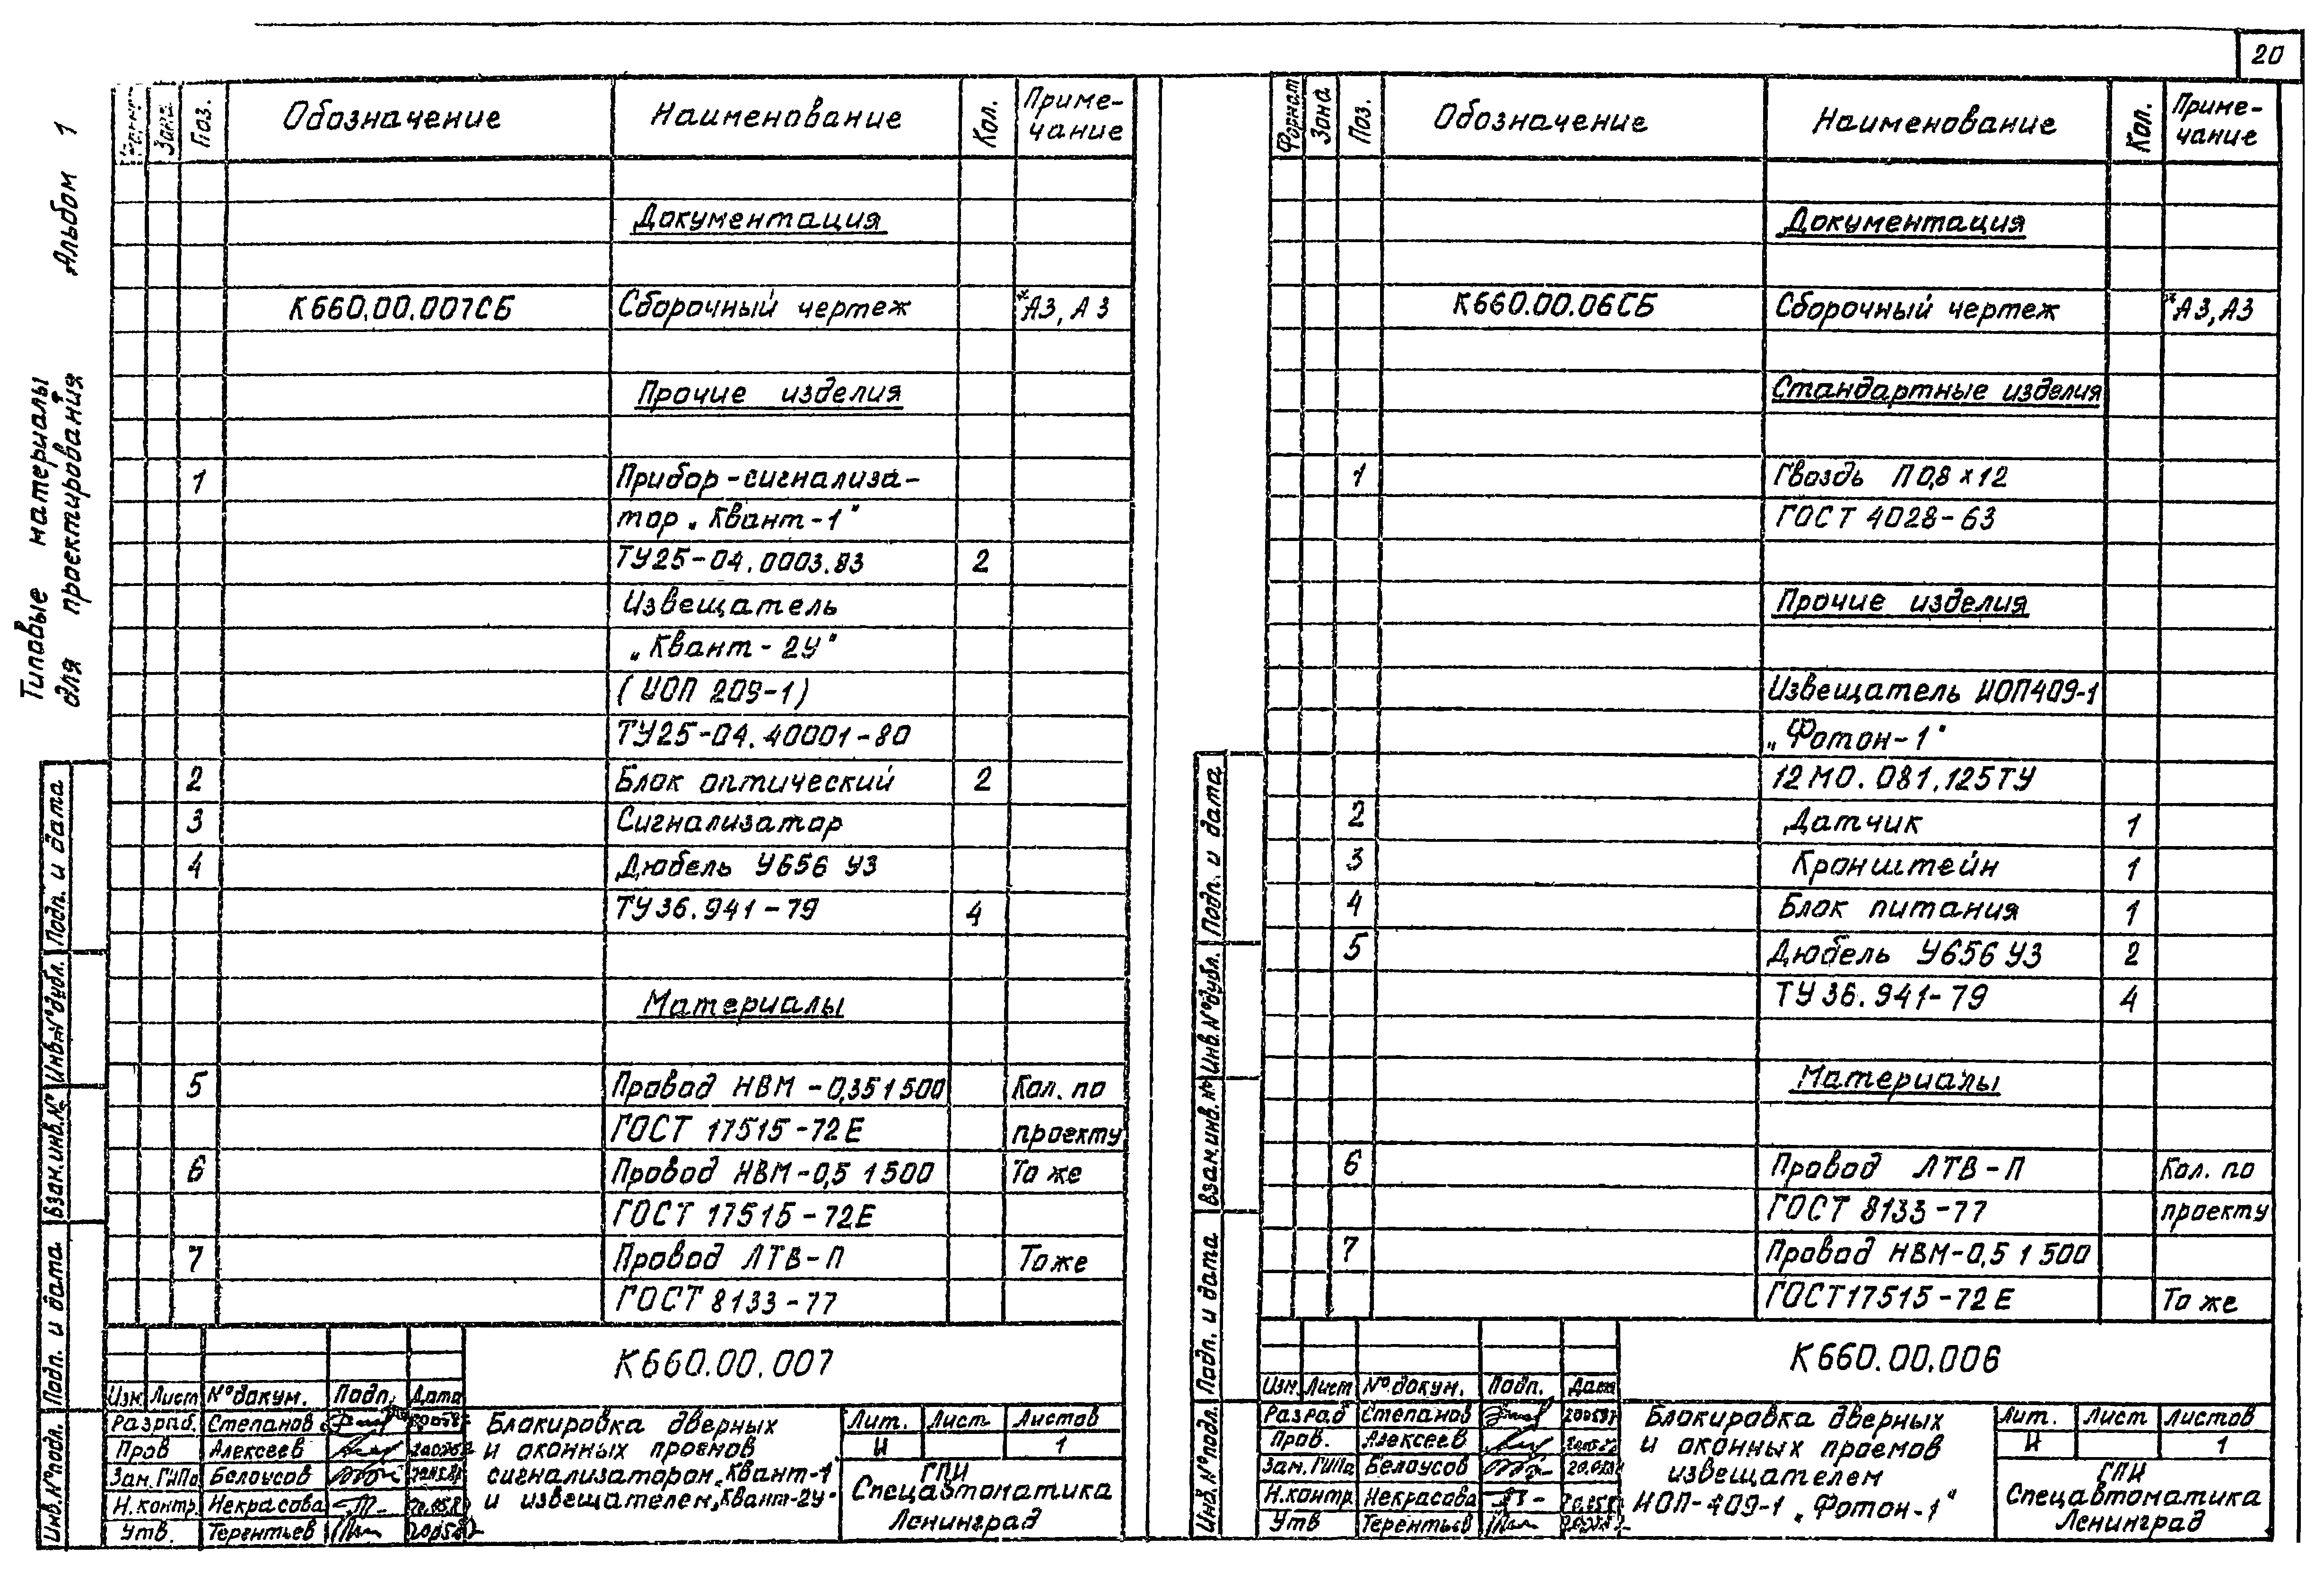 20
Альбом 1
Типовые материалы
для проектирования
Зона Поз. Обозначение Наименование Кол. Приме-
чание
Документация
К660.00.007СБ Сборочный чертеж *А3, А3
Прочие изделия
1 Прибор-сигнализа-
тор „Квант-1"
ТУ25-04.0003.83 2
Извещатель
„Квант-2У"
(ИОП 209-1)
ТУ25-04.40001-80
2 Блок оптический 2
3 Сигнализатор
4 Дюбель У656 У3
ТУ36.941-79 4
Материалы
5 Провод НВМ-0,35 1 500 Кол. по
ГОСТ 17515-72Е проекту
6 Провод НВМ-0,5 1 500 То же
ГОСТ 17515-72Е
7 Провод ЛТВ-П То же
ГОСТ 8133-77
Подп. и дата
Инв.№дубл.
Взам.инв.№
Подп. и дата
Инв.№подл.
К660.00.007
Изм. Лист №докум. Подп. Дата
Разраб. Степанов
Пров Алексеев
Зам.ГИПа Белоусов
Н.контр. Некрасова
Утв. Терентьев
Блокировка дверных
и оконных проемов
сигнализатором „Квант-1
и извещателем „Квант-2У"
Лит. Лист Листов
И 1
ГПИ
Спецавтоматика
Ленинград
Формат Зона Поз. Обозначение Наименование Кол. Приме-
чание
Документация
К660.00.06СБ Сборочный чертеж *А3, А3
Стандартные изделия
1 Гвоздь П 0,8×12
ГОСТ 4028-63
Прочие изделия
Извещатель ИОП409-1
„Фотон-1"
12МО.081.125ТУ
2 Датчик 1
3 Кронштейн 1
4 Блок питания 1
5 Дюбель У656 У3 2
ТУ36.941-79 4
Материалы
6 Провод ЛТВ-П Кол. по
ГОСТ 8133-77 проекту
7 Провод НВМ-0,5 1 500
ГОСТ17515-72Е То же
Подп. и дата
Инв.№дубл.
Взам.инв.№
Подп. и дата
Инв.№подл.
К660.00.006
Изм. Лист №докум. Подп. Дата
Разраб Степанов
Пров. Алексеев
Зам.ГИПа Белоусов
Н.контр. Некрасова
Утв Терентьев
Блокировка дверных
и оконных проемов
извещателем
ИОП-409-1 „Фотон-1"
Лит. Лист Листов
И 1
ГПИ
Спецавтоматика
Ленинград